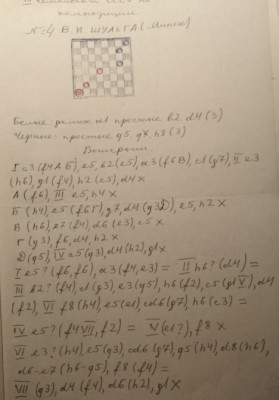 композиции
№4 В.И. ШУЛЬГА (Минск)
Белые: дамка с1 простые b2 d4 (3)
Черные: простые g5, g7, h8 (3)
Выигрыш.
I c3 (f4 А Б), e5, b2 (e5), a3 (f6 В), c1 (g7), II e3
(h6), g1 (f4), h2 (e5), d4 X
А (f6), III e5, h4 X
Б (h4), e5 (f6 Г), g7, d4 (g3 Д), e5, h2 X
В (h6), e7 (f4), d6 (e3), c5 X
Г (g3), f6, d4, h2 X
Д (g5), IV c5 (g3), d4 (h2), g1 X
I e5? (f6, f6), a3 (f4, e3) = II h6? (d4) =
III b2? (f4), c1 (g3), e3 (g5), h6 (f2), c5 (g1 V), d4
(f2), VI f8 (h4), e5 (e1), cd6 (g7), h6 (c3) =
IV e5? (f4 VII, f2) = V (e1?), f8 X
VI e3? (h4), e5 (g3), cd6 (g7), g5 (h4), d8 (h6),
d6-e7 (h6-g5), f8 (f4) =
VII (g3), d4 (f4), d6 (h2), g1 X